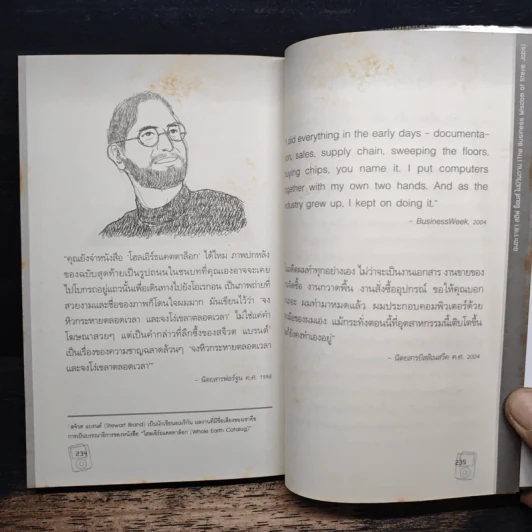 "คุณยังจำหนังสือ 'โฮลเอิร์ธแคตตาล็อก' ได้ไหม ภาพปกหลัง
ของฉบับสุดท้ายเป็นรูปถนนในชนบทที่คุณอาจจะเคย
ไปโบกรถอยู่แถวนั้นเพื่อเดินทางไปยังโอเรกอน เป็นภาพถ่ายที่
สวยงามและชื่อของภาพก็โดนใจผมมาก มันเขียนไว้ว่า 'จง
หิวกระหายตลอดเวลา และจงโง่เขลาตลอดเวลา' ไม่ใช่แค่คำ
โฆษณาสวยๆ แต่เป็นคำกล่าวที่ลึกซึ้งของสจ๊วต แบรนด์
เป็นเรื่องของความชาญฉลาดล้วนๆ 'จงหิวกระหายตลอดเวลา
และจงโง่เขลาตลอดเวลา'"
– นิตยสารฟอร์จูน ค.ศ. 1998
สจ๊วต แบรนด์ (Stewart Brand) เป็นนักเขียนอเมริกัน ผลงานที่มีชื่อเสียงของเขาคือ
การเป็นบรรณาธิการของหนังสือ "โฮลเอิร์ธแคตตาล็อก (Whole Earth Catalog)"
234
did everything in the early days – documenta-
sales, supply chain, sweeping the floors,
chips, you name it. I put computers
with my own two hands. And as the
grew up, I kept on doing it."
– BusinessWeek, 2004
ผมทำทุกอย่างเอง ไม่ว่าจะเป็นงานเอกสาร งานขายของ
งานกวาดพื้น งานสั่งซื้ออุปกรณ์ ขอให้คุณบอก
ผมทำมาหมดแล้ว ผมประกอบคอมพิวเตอร์ด้วย
มือของผมเอง แม้กระทั่งตอนนี้ที่อุตสาหกรรมนี้เติบโตขึ้น
ยังคงทำเองอยู่"
– นิตยสารบิสสิเนสวีค ค.ศ. 2004
235
(The Business Wisdom of Steve Jobs)